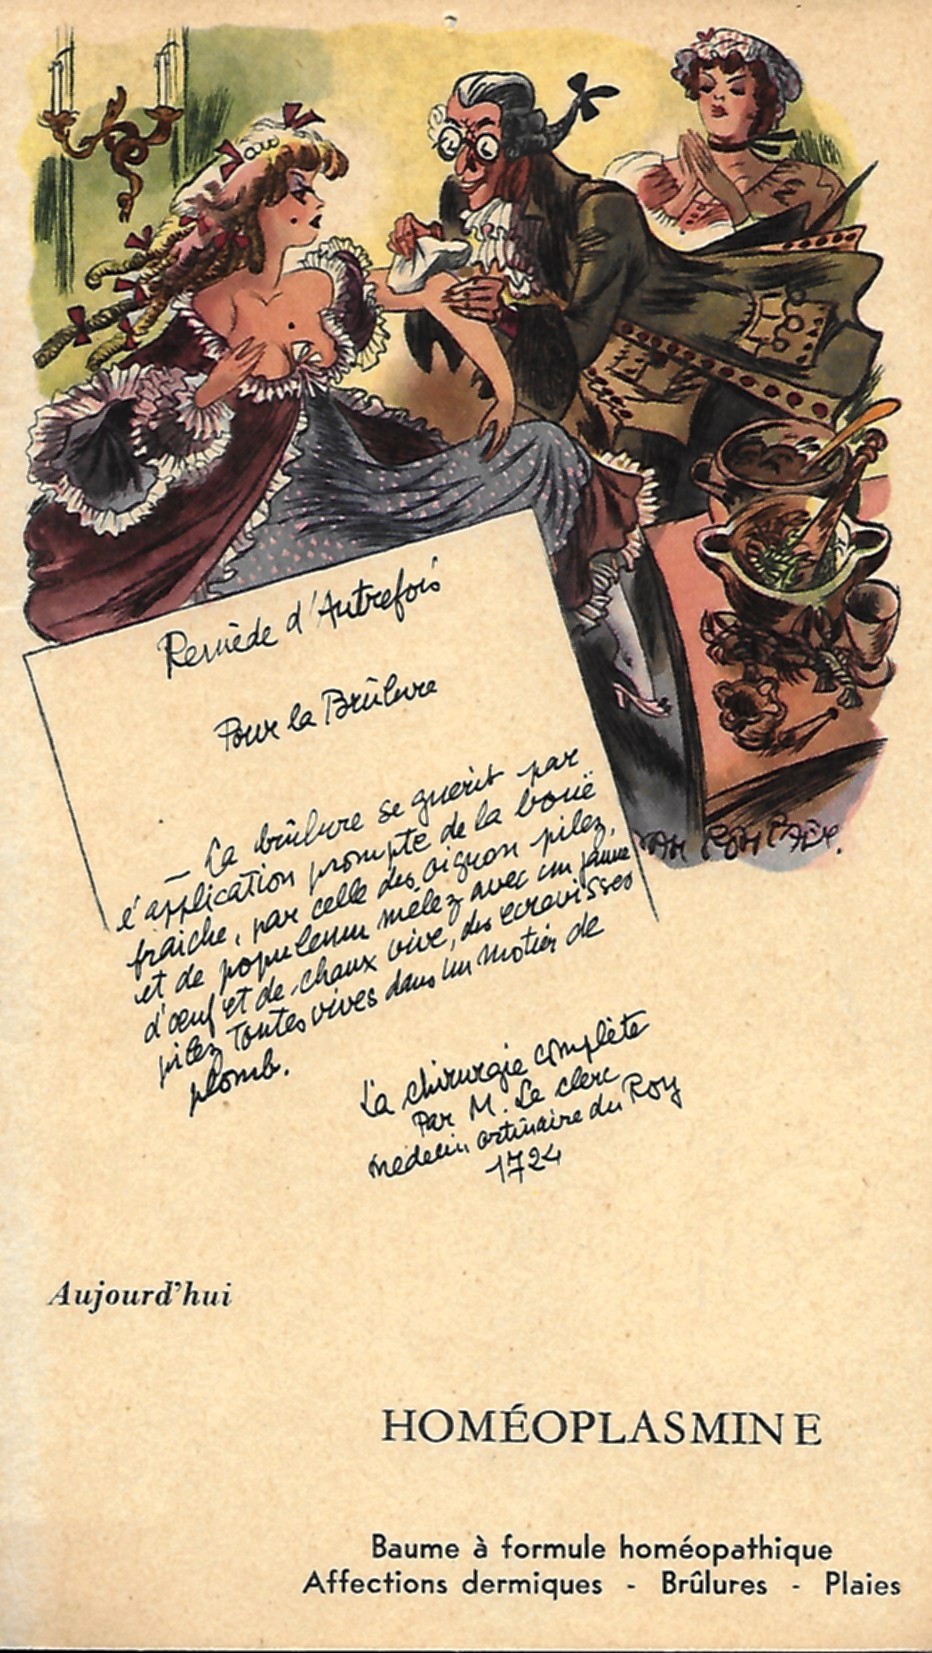 Remède d'Autrefois
Pour la Brûlure
— La brûlure se guerit par
l'application prompte de la bouë
fraiche, par celle des oignon pilez,
et de populeum mêlez avec un jaune
d'œuf et de chaux vive, des ecrevisses
pilez toutes vives dans un motier de
plomb.
La chirurgie complète
Par M. Le clerc
medecin ortinaire du Roy
1724
Aujourd'hui
HOMÉOPLASMINE
Baume à formule homéopathique
Affections dermiques - Brûlures - Plaies